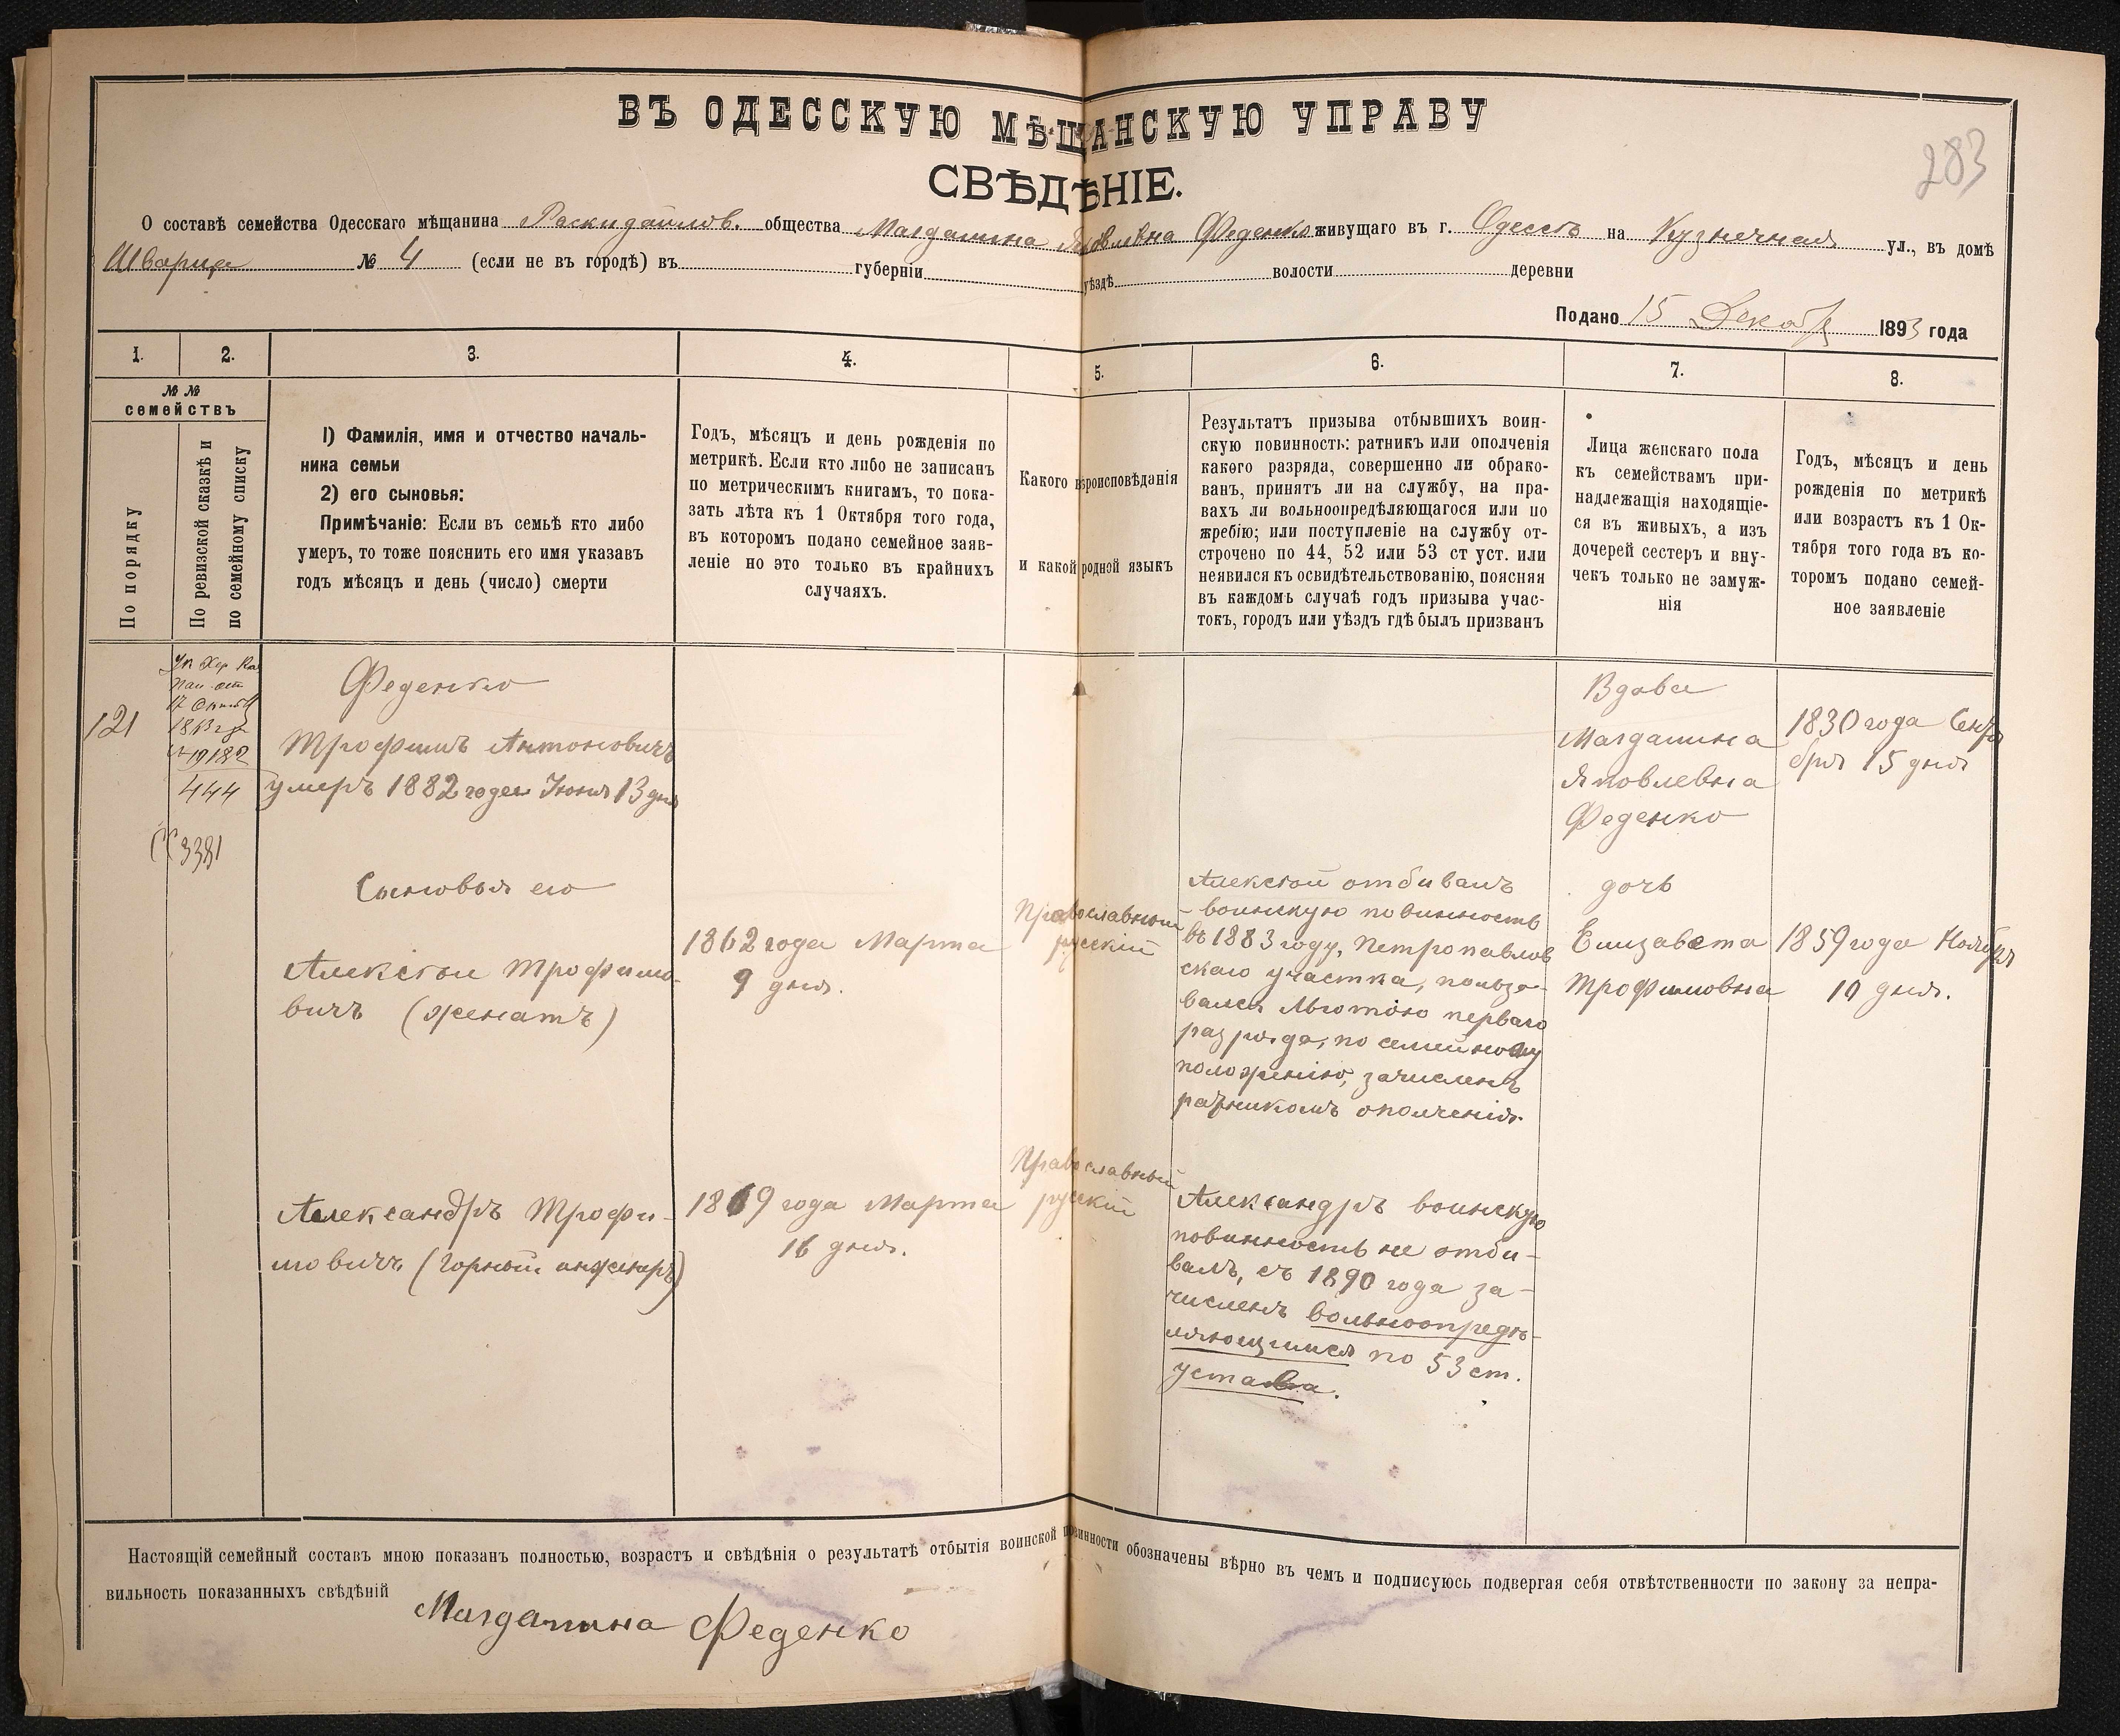 ВЪ ОДЕССКУЮ МѢЩАНСКУЮ УПРАВУ
283
СВѢДѢНІЕ.
О составѣ семейства Одесскаго мѣщанина Раскидайлов. общества Магдалина Яковлевна Феденко живущаго въ г. Одессѣ на Кузнечная ул., въ домѣ
Шварца № 4 (если не въ городѣ) въ губерніи уѣздѣ волости деревни
Подано 15 Декабр 1893 года
1. 2. 3. 4. 5. 6. 7. 8.
№ №
семействъ
По порядку
По ревизской сказкѣ и
по семейному списку
1) Фамилія, имя и отчество началь-
ника семьи
2) его сыновья:
Примѣчаніе: Если въ семьѣ кто либо
умеръ, то тоже пояснить его имя указавъ
годъ мѣсяцъ и день (число) смерти
Годъ, мѣсяцъ и день рожденія по
метрикѣ. Если кто либо не записанъ
по метрическимъ книгамъ, то пока-
зать лѣта къ 1 Октября того года,
въ которомъ подано семейное заяв-
леніе но это только въ крайнихъ
случаяхъ.
Какого вѣроисповѣданія
и какой родной языкъ
Результатъ призыва отбывшихъ воин-
скую повинность: ратникъ или ополченія
какого разряда, совершенно ли обрако-
ванъ, принятъ ли на службу, на пра-
вахъ ли вольноопредѣляющагося или по
жребію; или поступленіе на службу от-
строчено по 44, 52 или 53 ст уст. или
неявился къ освидѣтельствованію, поясняя
въ каждомъ случаѣ годъ призыва учас-
токъ, городъ или уѣздъ гдѣ былъ призванъ
Лица женскаго пола
къ семействамъ при-
надлежащія находящіе-
ся въ живыхъ, а изъ
дочерей сестеръ и вну-
чекъ только не замуж-
нія
Годъ, мѣсяцъ и день
рожденія по метрикѣ
или возрастъ къ 1 Ок-
тября того года въ ко-
торомъ подано семей-
ное заявленіе
121
Ук Хер Каз
Пал от
17 Октяб
1863 г
19182
444
3381
Феденко
Трофимъ Антоновичъ
умеръ 1882 года Іюня 13 дня
Сыновья его
Алексѣй Трофимо-
вичъ (женатъ)
Александръ Трофи-
мовичъ (горный инженеръ)
1862 года Марта
9 дня.
1869 года Марта
16 дня.
Православный
русскій
Православный
русскій
Алексѣй отбивалъ
воинскую повинность
въ 1883 году, Петропавлов
скаго участка, пользо-
вался Льготою перваго
разряда, по семейному
положенію, зачисленъ
ратникомъ ополченія.
Александръ воинскую
повинность не отби-
валъ, съ 1890 года за-
численъ вольноопредѣ-
ляющимся по 53 ст.
устава.
Вдова
Магдалина
Яковлевна
Феденко
дочь
Елизавета
Трофимовна
1830 года Сентя
бря 15 дня
1859 года Ноября
19 дня.
Настоящій семейный составъ мною показанъ полностью, возрастъ и свѣдѣнія о результатѣ отбытія воинской повинности обозначены вѣрно въ чемъ и подписуюсь подвергая себя отвѣтственности по закону за непра-
вильность показанныхъ свѣдѣній
Магдалина Феденко